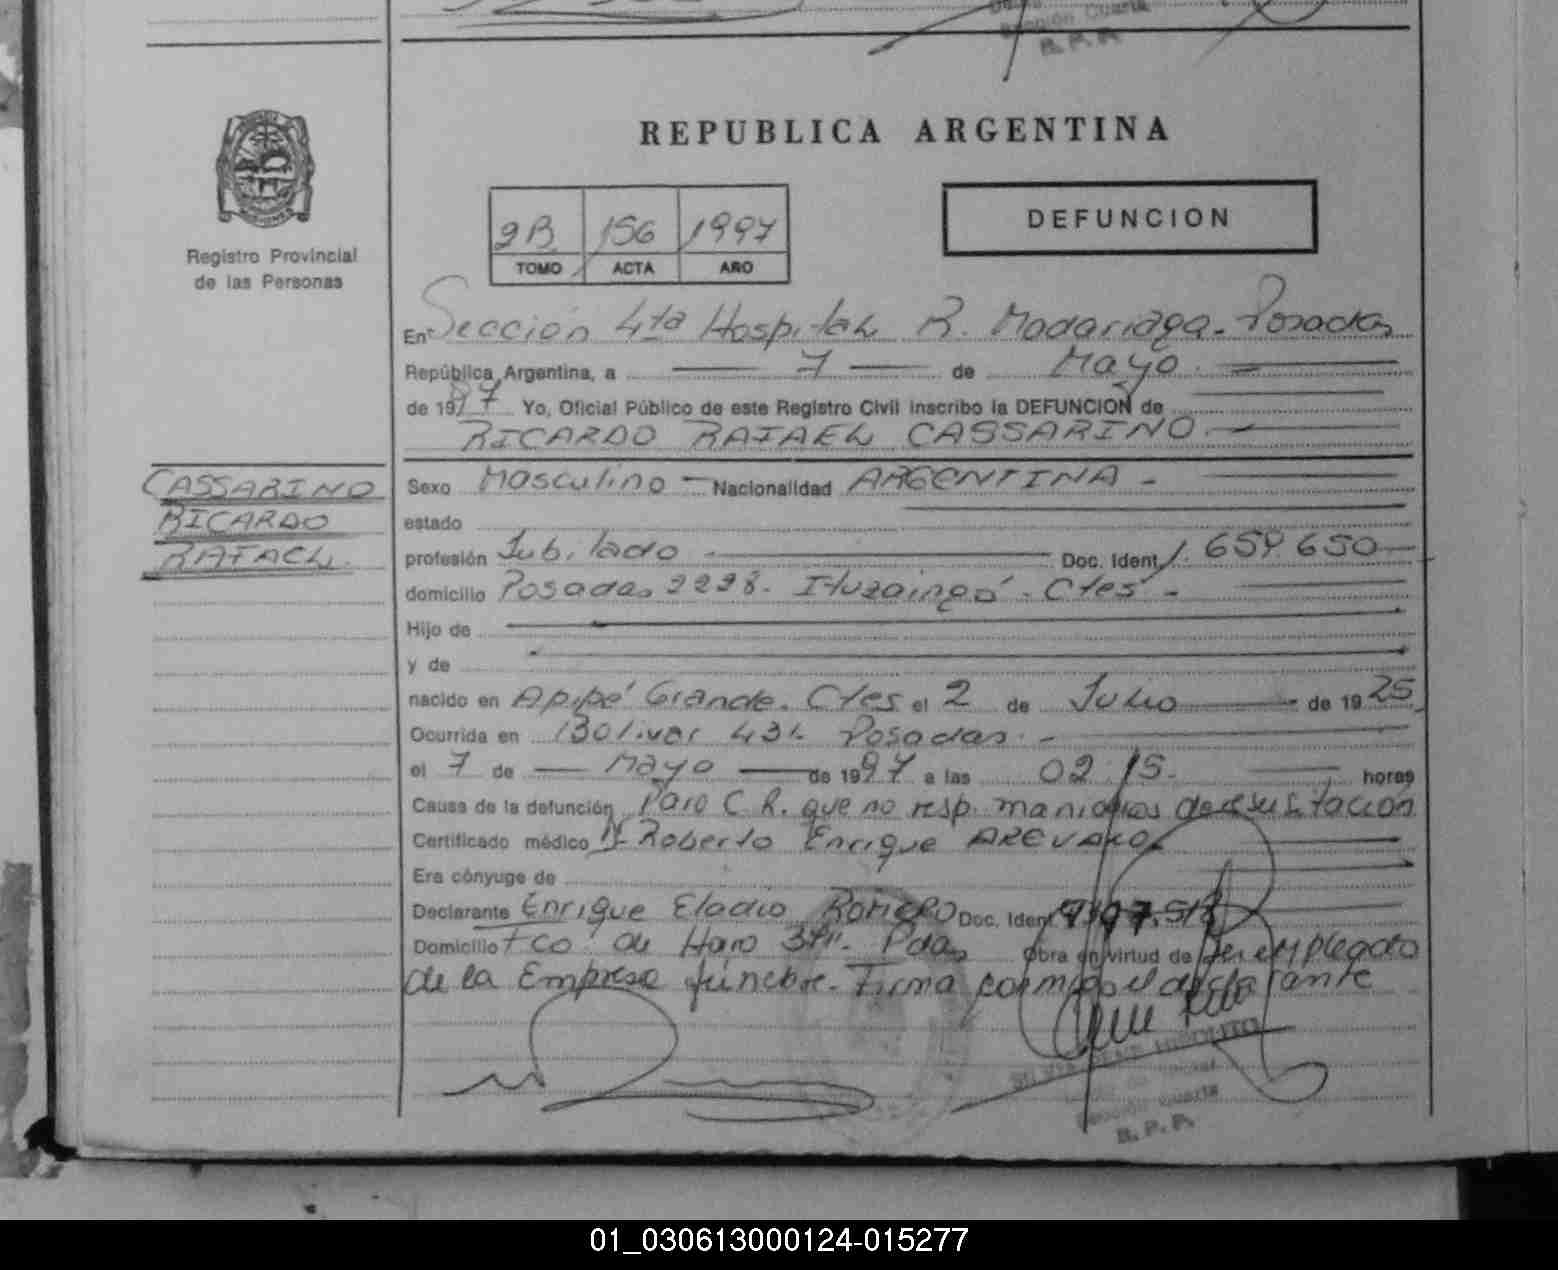 Sección Cuarta
R. P. P.
Registro Provincial
de las Personas
REPUBLICA ARGENTINA
2B 156 1997
TOMO ACTA AÑO
DEFUNCION
En Sección 4ta Hospital R. Madariaga - Posadas
República Argentina, a 7 de Mayo
de 1997 Yo, Oficial Público de este Registro Civil inscribo la DEFUNCION de
RICARDO RAFAEL CASSARINO
CASSARINO
RICARDO
RAFAEL
Sexo Masculino - Nacionalidad ARGENTINA -
estado
profesión Jubilado Doc. Ident. 1.659.650
domicilio Posadas 2228 - Ituzaingó - Ctes -
Hijo de
y de
nacido en Apipé Grande. Ctes el 2 de Julio de 1925
Ocurrida en Bolívar 431 Posadas. -
el 7 de Mayo de 1997 a las 02:15 horas
Causa de la defunción Paro C. R. que no resp. maniobras de resusitación
Certificado médico Dr Roberto Enrique AREVALO
Era cónyuge de
Declarante Enrique Eladio ROMERO Doc. Ident.
Domicilio Fco. de Haro Pdas Obra en virtud de ser empleado
de la Empresa fúnebre - Firma conmigo el declarante
Sección Cuarta
R. P. P.
01_030613000124-015277